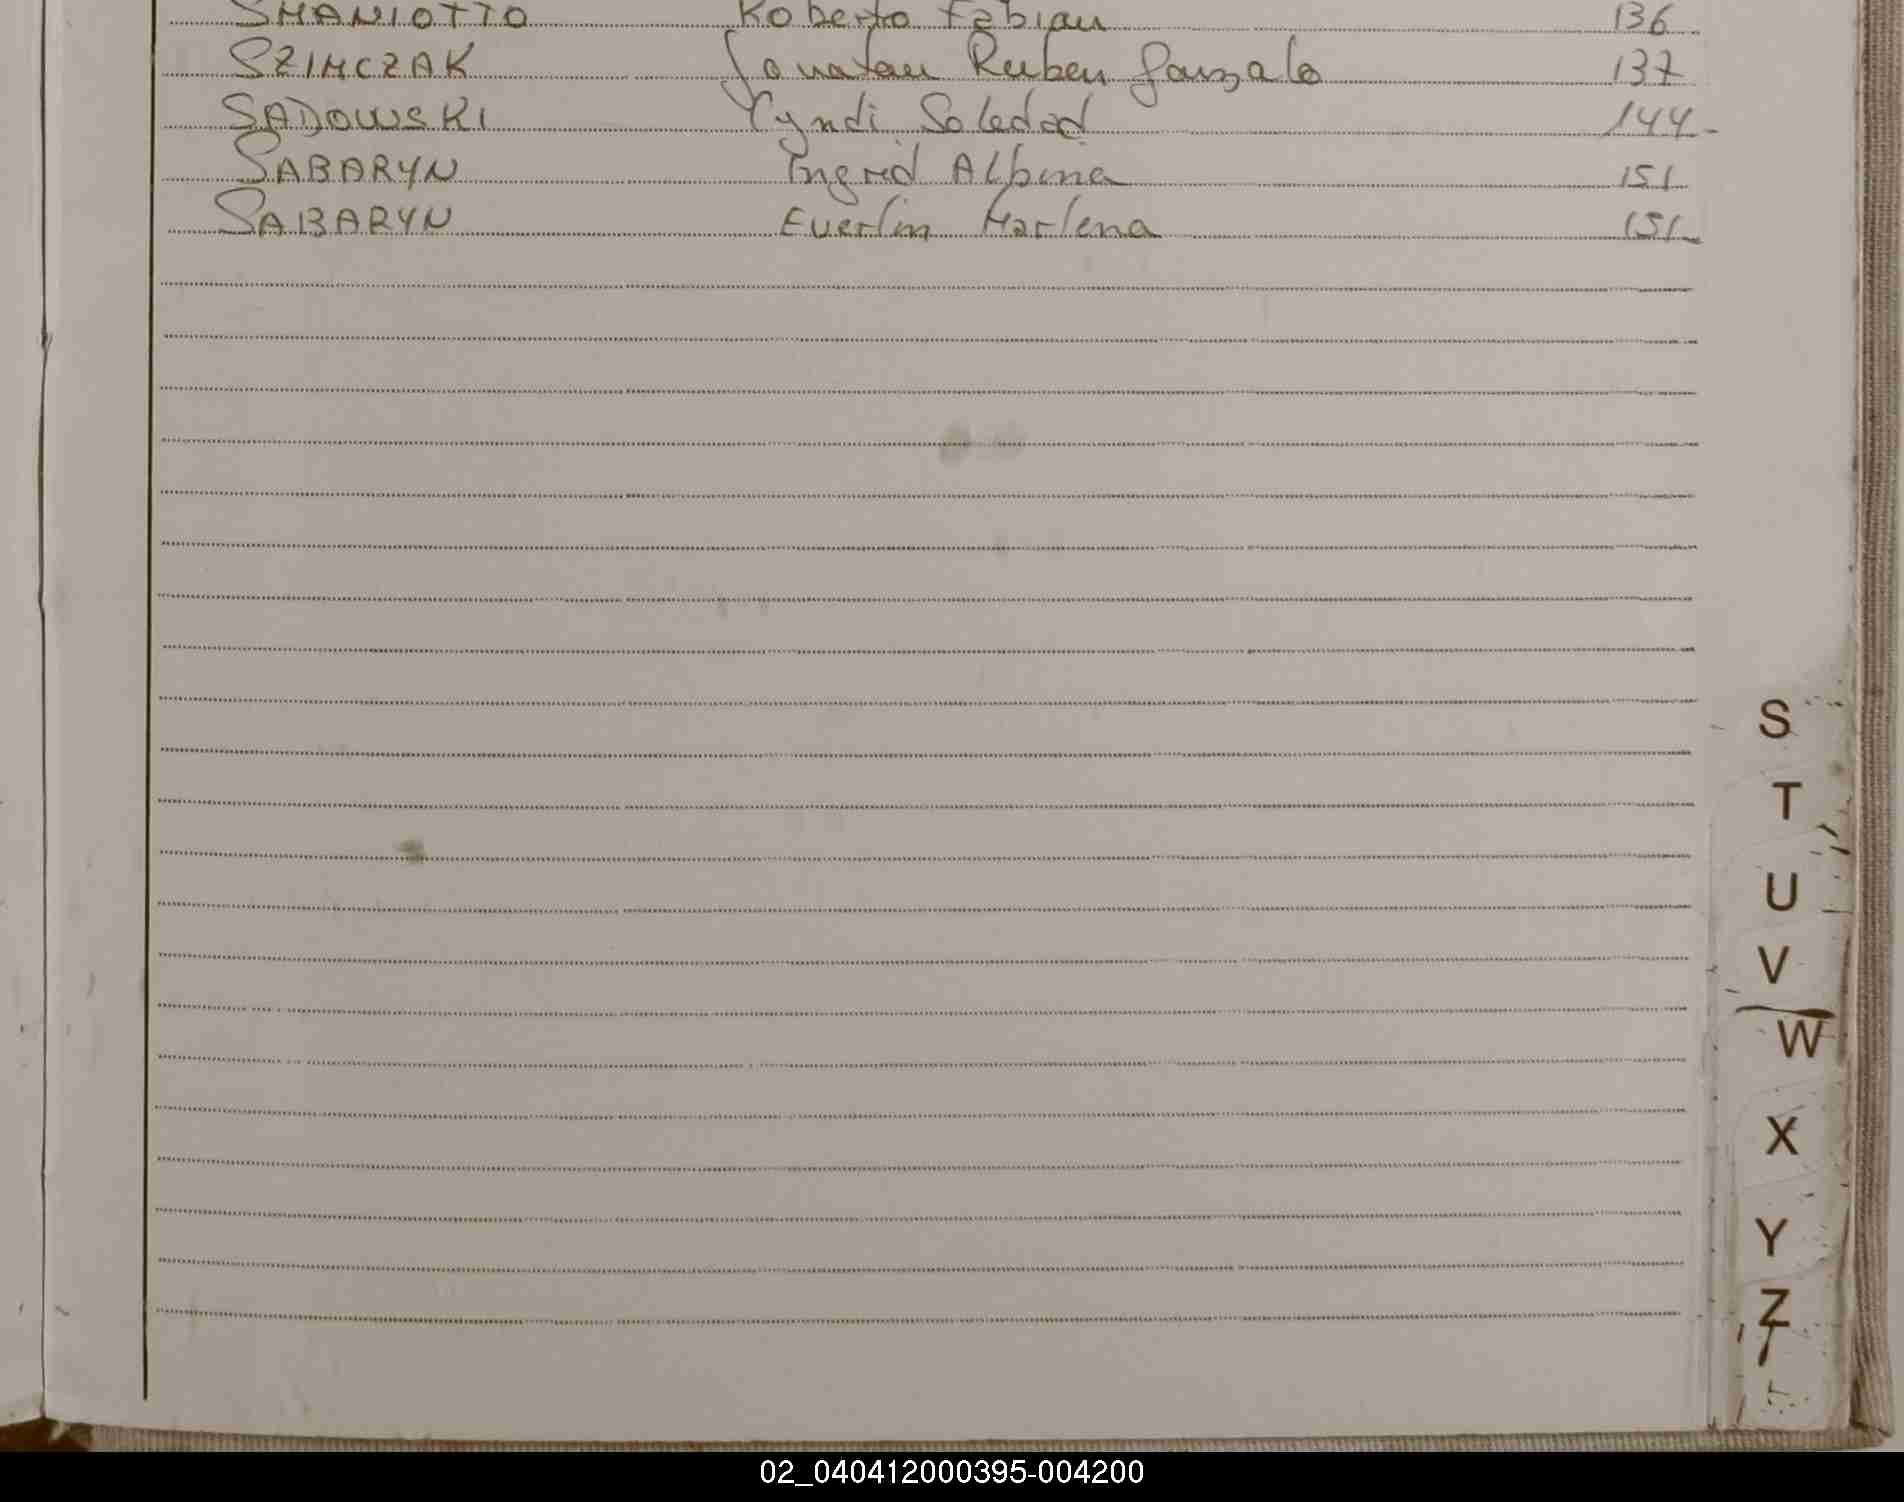 SMANIOTTO Roberto Fabian 136
SZIMCZAK Jonatan Ruben Gonzalo 137
SADOWSKI Cyndi Soledad 144
SABARYN Ingrid Albina 151
SABARYN Everlin Marlena 151
S
T
U
V
W
X
Y
Z
02_040412000395-004200